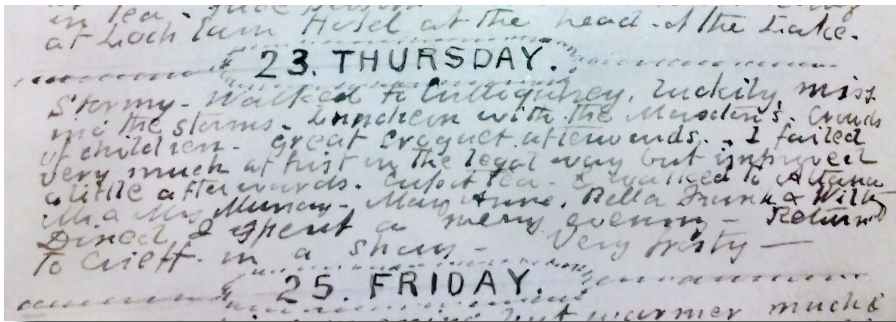 in Tea.
at Loch Earn Hotel at the head of the Lake.
23. THURSDAY.
Stormy - Walked to Cultoquhey, luckily miss
ing the storms. Luncheon with the Marsdon's. Crowds
of children. great Croquet afterwards. I failed
very much at first in the legal way but improved
a little afterwards. tea. & walked to
Mr. & Mrs. Murray - Mary Anne, Bella Frank & Willy
Dined & spent a merry evening - Return
To Crieff in a Very frosty —
25. FRIDAY.
but warmer much &